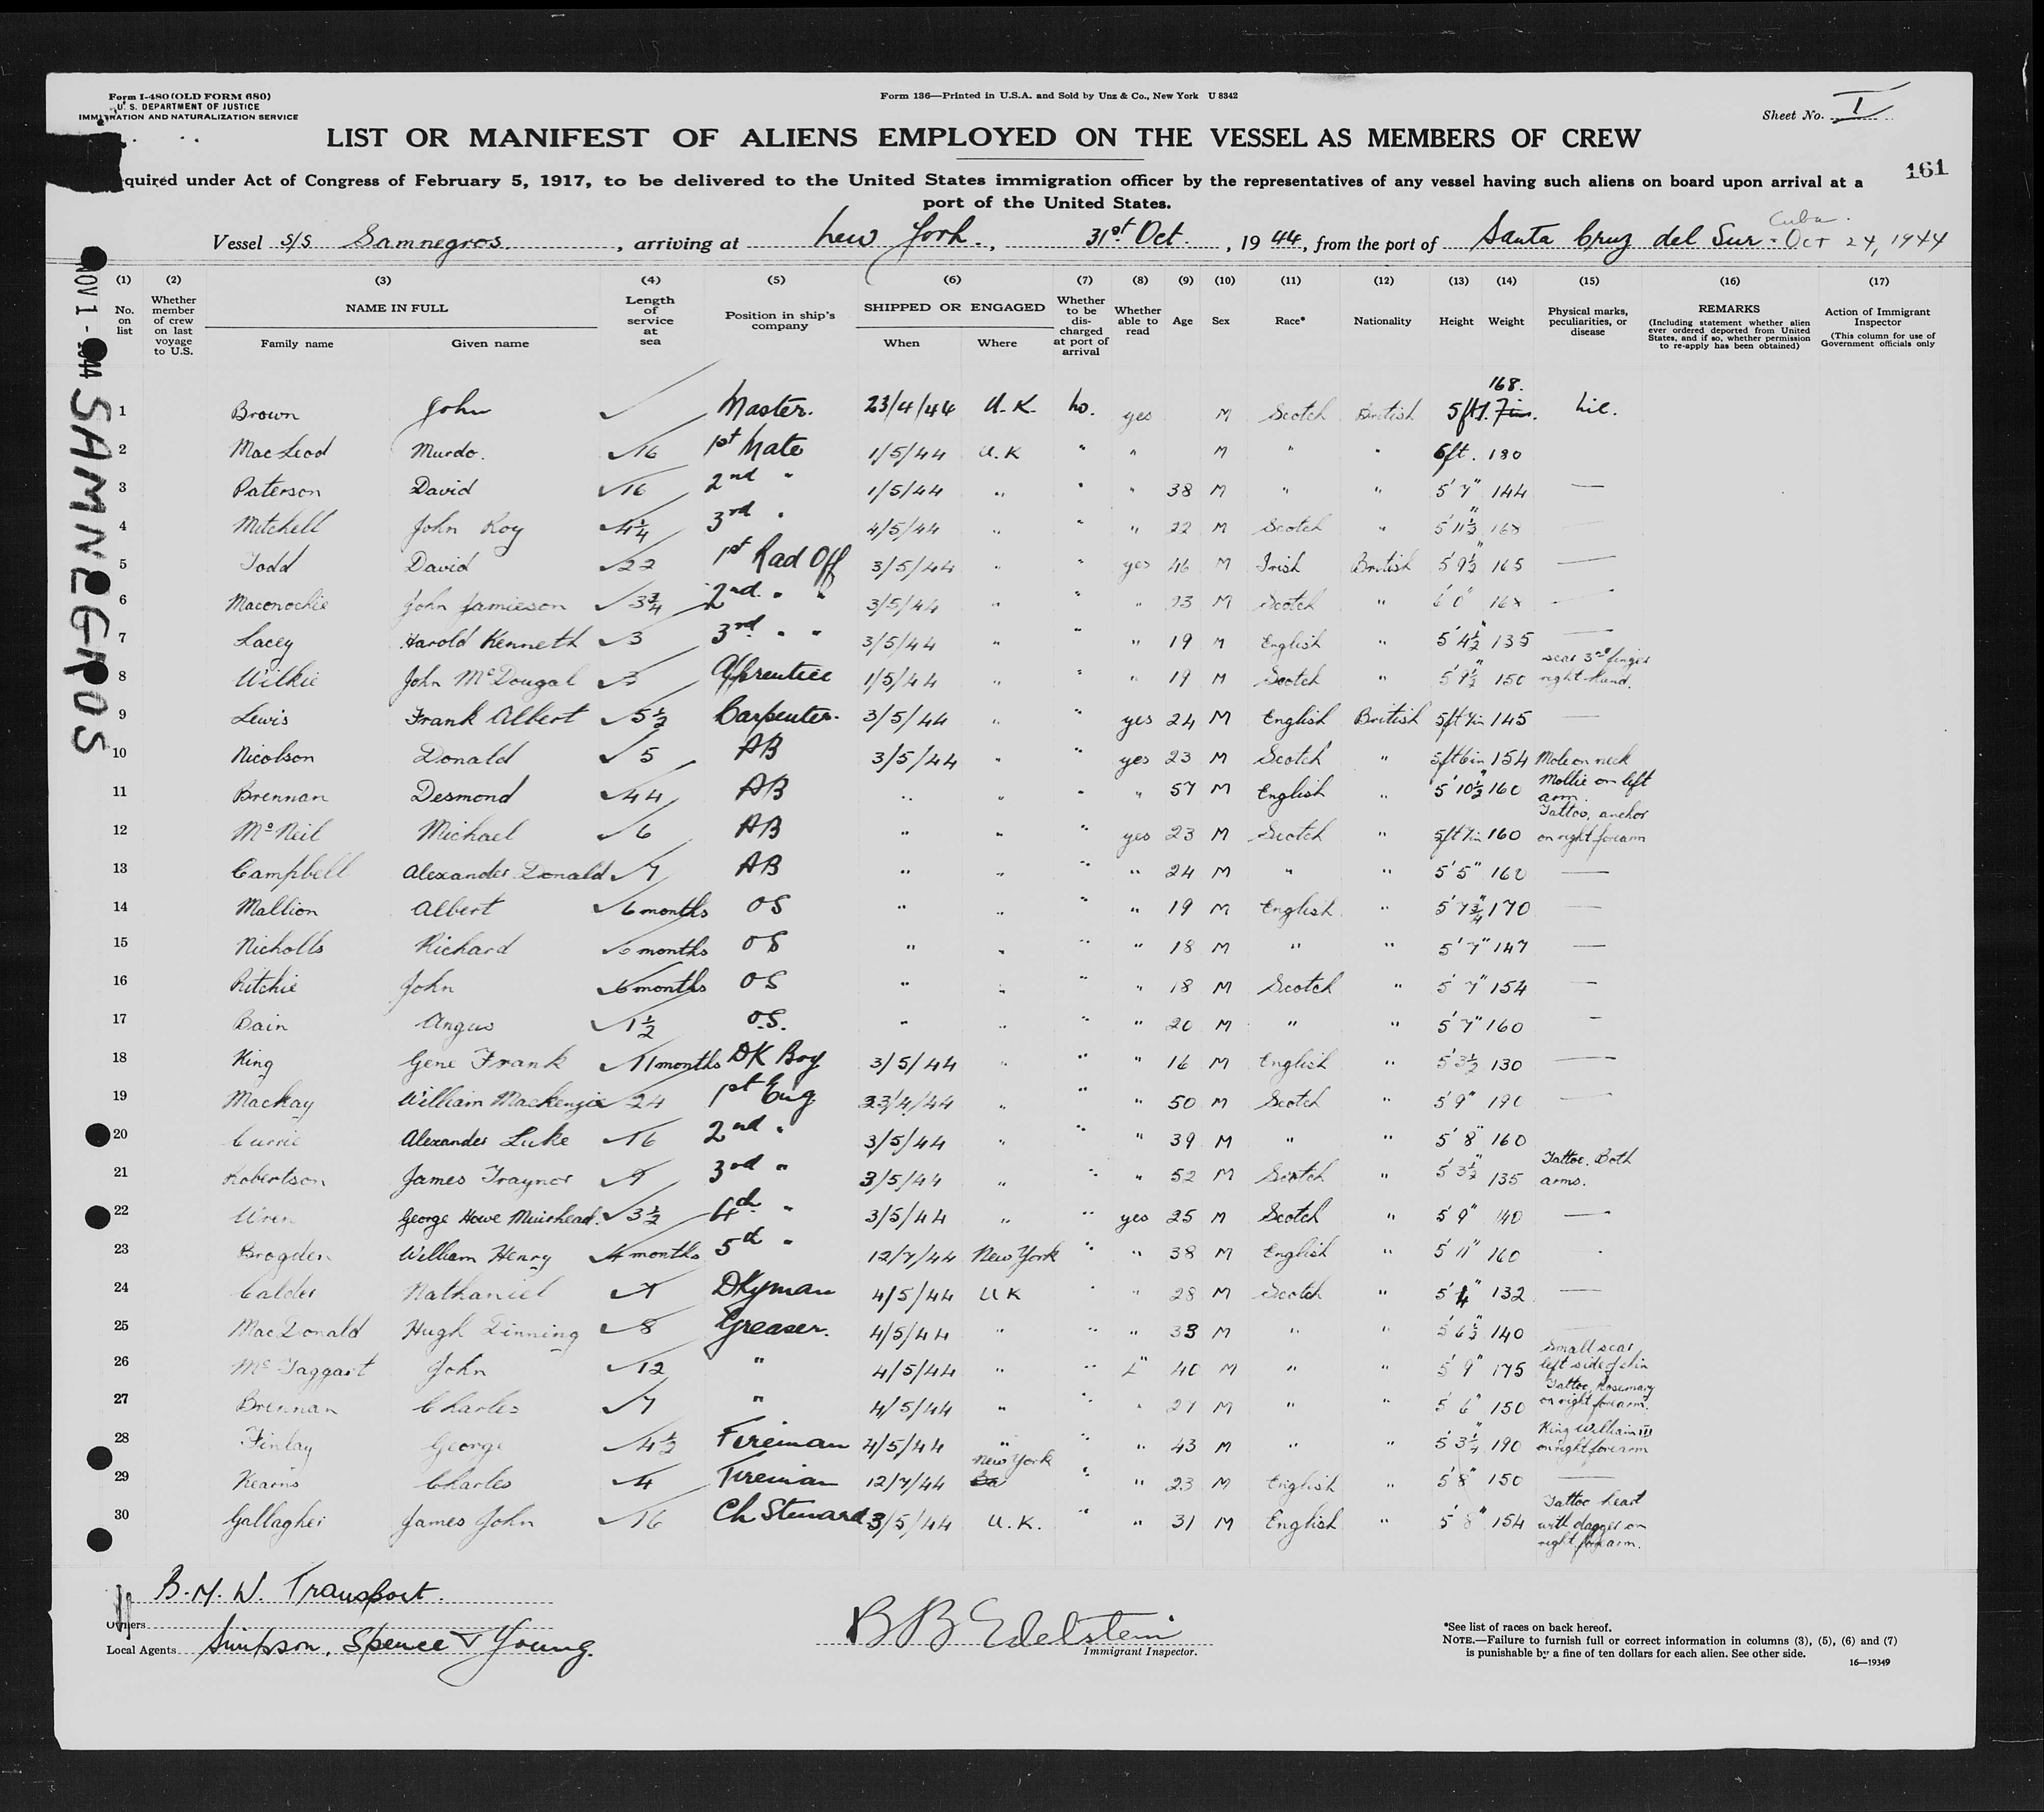 Form I-480 (OLD FORM 680)
U. S. DEPARTMENT OF JUSTICE
IMMIGRATION AND NATURALIZATION SERVICE
Form 136—Printed in U.S.A. and Sold by Unz & Co., New York U 8342
Sheet No. I
LIST OR MANIFEST OF ALIENS EMPLOYED ON THE VESSEL AS MEMBERS OF CREW
161
quired under Act of Congress of February 5, 1917, to be delivered to the United States immigration officer by the representatives of any vessel having such aliens on board upon arrival at a
port of the United States.
Vessel S/S Samnegros, arriving at New York, 31st Oct., 1944, from the port of Santa Cruz del Sur - Cuba. Oct 24, 1944
NOV 1 - 1944 SAMNEGROS
(1) (2) (3) (4) (5) (6) (7) (8) (9) (10) (11) (12) (13) (14) (15) (16) (17)
No. on list
Whether member of crew on last voyage to U.S.
NAME IN FULL
Family name Given name
Length of service at sea
Position in ship's company
SHIPPED OR ENGAGED
When Where
Whether to be discharged at port of arrival
Whether able to read
Age Sex Race* Nationality Height Weight
Physical marks, peculiarities, or disease
REMARKS
(Including statement whether alien ever ordered deported from United States, and if so, whether permission to re-apply has been obtained)
Action of Immigrant Inspector
(This column for use of Government officials only
1 Brown John ✓ Master. 23/4/44 U.K. No. yes M Scotch British 5ft 7in. 168. Nil.
2 MacLeod Murdo. ✓16 1st Mate 1/5/44 U.K " " M " " 6ft. 180
3 Paterson David ✓16 2nd " 1/5/44 " " " 38 M " " 5'7" 144 —
4 Mitchell John Roy ✓4¼ 3rd " 4/5/44 " " " 22 M Scotch " 5'11½" 168 —
5 Todd David ✓22 1st Rad Off 3/5/44 " " yes 46 M Irish British 5'9½" 165 —
6 Maconochie John Jamieson ✓3¾ 2nd " " 3/5/44 " " " 23 M Scotch " 6'0" 168 —
7 Lacey Harold Kenneth ✓3 3rd " " 3/5/44 " " " 19 M English " 5'4½" 135 —
8 Wilkie John McDougal ✓3 Apprentice 1/5/44 " " " 19 M Scotch " 5'9½" 150 scar 3rd finger right hand.
9 Lewis Frank Albert ✓5½ Carpenter. 3/5/44 " " yes 24 M English British 5ft 7in 145 —
10 Nicolson Donald ✓5 AB 3/5/44 " " yes 23 M Scotch " 5ft 6in 154 Mole on neck
11 Brennan Desmond ✓44 AB " " " " 57 M English " 5'10½" 160 Mollie on left arm.
12 McNeil Michael ✓6 AB " " " yes 23 M Scotch " 5ft 7in 160 Tattoo, anchor on right forearm
13 Campbell Alexander Donald ✓7 AB " " " " 24 M " " 5'5" 160 —
14 Mallion Albert ✓6 months OS " " " " 19 M English " 5'7¾" 170 —
15 Nicholls Richard ✓6 months OS " " " " 18 M " " 5'7" 147 —
16 Ritchie John ✓6 months OS " " " " 18 M Scotch " 5'7" 154 —
17 Bain Angus ✓1½ O.S. " " " " 20 M " " 5'7" 160 —
18 King Gene Frank ✓11 months DK Boy 3/5/44 " " " 16 M English " 5'3½ 130 —
19 Mackay William Mackenzie ✓24 1st Eng 23/4/44 " " " 50 M Scotch " 5'9" 190 —
20 Currie Alexander Luke ✓16 2nd " 3/5/44 " " " 39 M " " 5'8" 160
21 Robertson James Traynor ✓9 3rd " 3/5/44 " " " 52 M Scotch " 5'3½" 135 Tattoo. Both arms.
22 Wren George Howe Muirhead. ✓3½ 4th " 3/5/44 " " yes 25 M Scotch " 5'9" 140 —
23 Brogden William Henry ✓4 months 5th " 12/7/44 New York " " 38 M English " 5'11" 160
24 Calder Nathaniel ✓7 Dkyman 4/5/44 UK " " 28 M Scotch " 5'4" 132 —
25 MacDonald Hugh Dinning ✓8 Greaser. 4/5/44 " " " 33 M " " 5'6½ 140 —
26 McTaggart John ✓12 " 4/5/44 " " " 40 M " " 5'9" 175 Small scar left side of chin
27 Brennan Charles ✓7 " 4/5/44 " " " 21 M " " 5'6" 150 Tattoo, Rosemary on right forearm.
28 Finlay George ✓4½ Fireman 4/5/44 " " " 43 M " " 5'3½" 190 King William III on right forearm
29 Kearns Charles ✓4 Fireman 12/7/44 New York " " 23 M English " 5'8" 150 —
30 Gallagher James John ✓16 Ch Steward 3/5/44 U.K. " " 31 M English " 5'8" 154 Tattoo heart with dagger on right forearm.
B.M.W. Transport.
Owners
Local Agents Simpson, Spence & Young.
B B Edelstein
Immigrant Inspector.
*See list of races on back hereof.
NOTE.—Failure to furnish full or correct information in columns (3), (5), (6) and (7)
is punishable by a fine of ten dollars for each alien. See other side.
16—19349